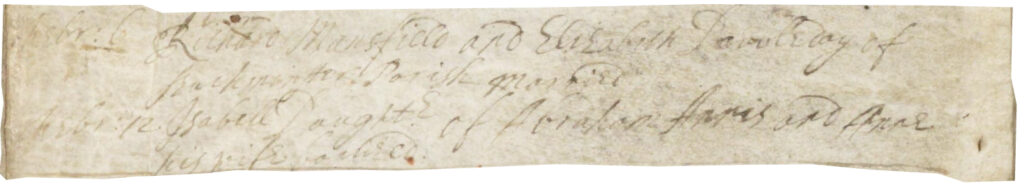 Febr: 6 Richard Mansfield and Elizabeth Dawleday of
Buckminster Parish married
Febr: 12 Isabell Daughtr of Abraham Annis and Anne
his wife baptized.